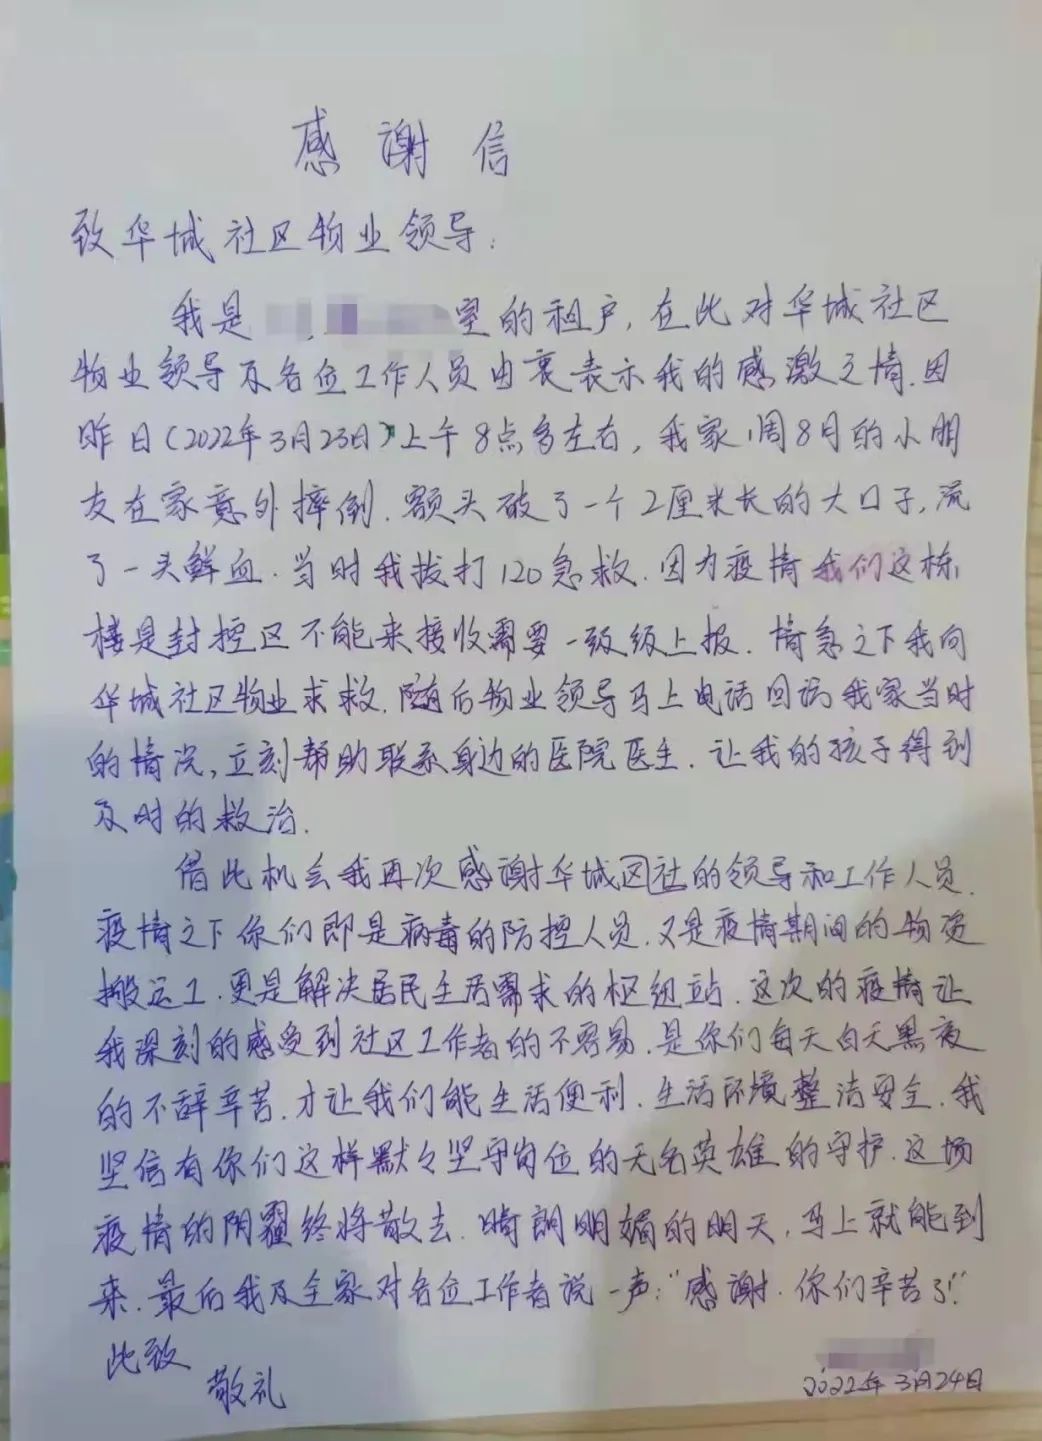 感谢信
致华城社区物业领导:
我是 室的租户,在此对华城社区
物业领导及各位工作人员由衷表示我的感激之情.因
昨日(2022年3月23日)上午8点多左右,我家1周8月的小朋
友在家意外摔倒.额头破了一个2厘米长的大口子,流
了一头鲜血.当时我拨打120急救.因为疫情我们这栋
楼是封控区不能来接收需要一级级上报.情急之下我向
华城社区物业求救.随后物业领导马上电话回访我家当时
的情况,立刻帮助联系身边的医院医生.让我的孩子得到
及时的救治.
借此机会我再次感谢华城区社的领导和工作人员.
疫情之下你们即是病毒的防控人员.又是疫情期间的物资
搬运工.更是解决居民生活需求的枢纽站.这次的疫情让
我深刻的感受到社区工作者的不容易.是你们每天白天黑夜
的不辞辛苦.才让我们能生活便利.生活环境整洁安全.我
坚信有你们这样默々坚守岗位的无名英雄的守护.这场
疫情的阴霾终将散去.晴朗明媚的明天,马上就能到
来.最后我及全家对各位工作者说一声:"感谢.你们辛苦了!"
此致
敬礼
2022年3月24日